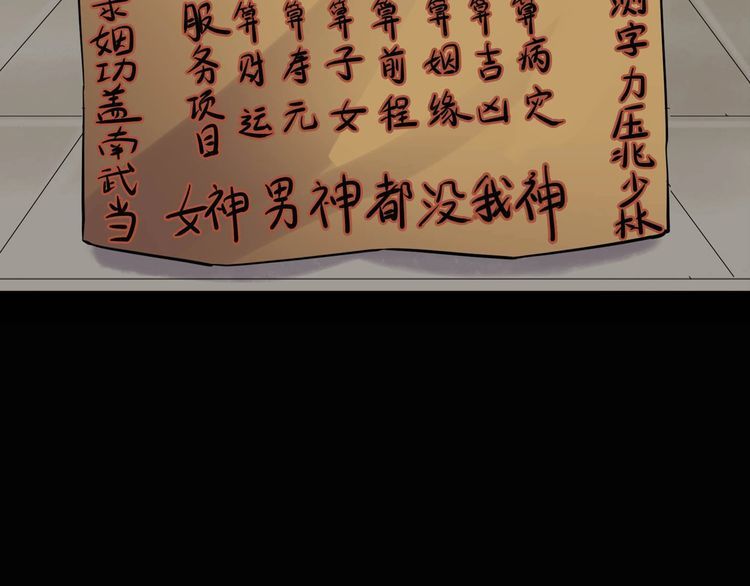 求姻功盖南武当
服务项目
算财运
算寿元
算子女
算前程
算姻缘
算吉凶
算病灾
测字力压北少林
女神男神都没我神